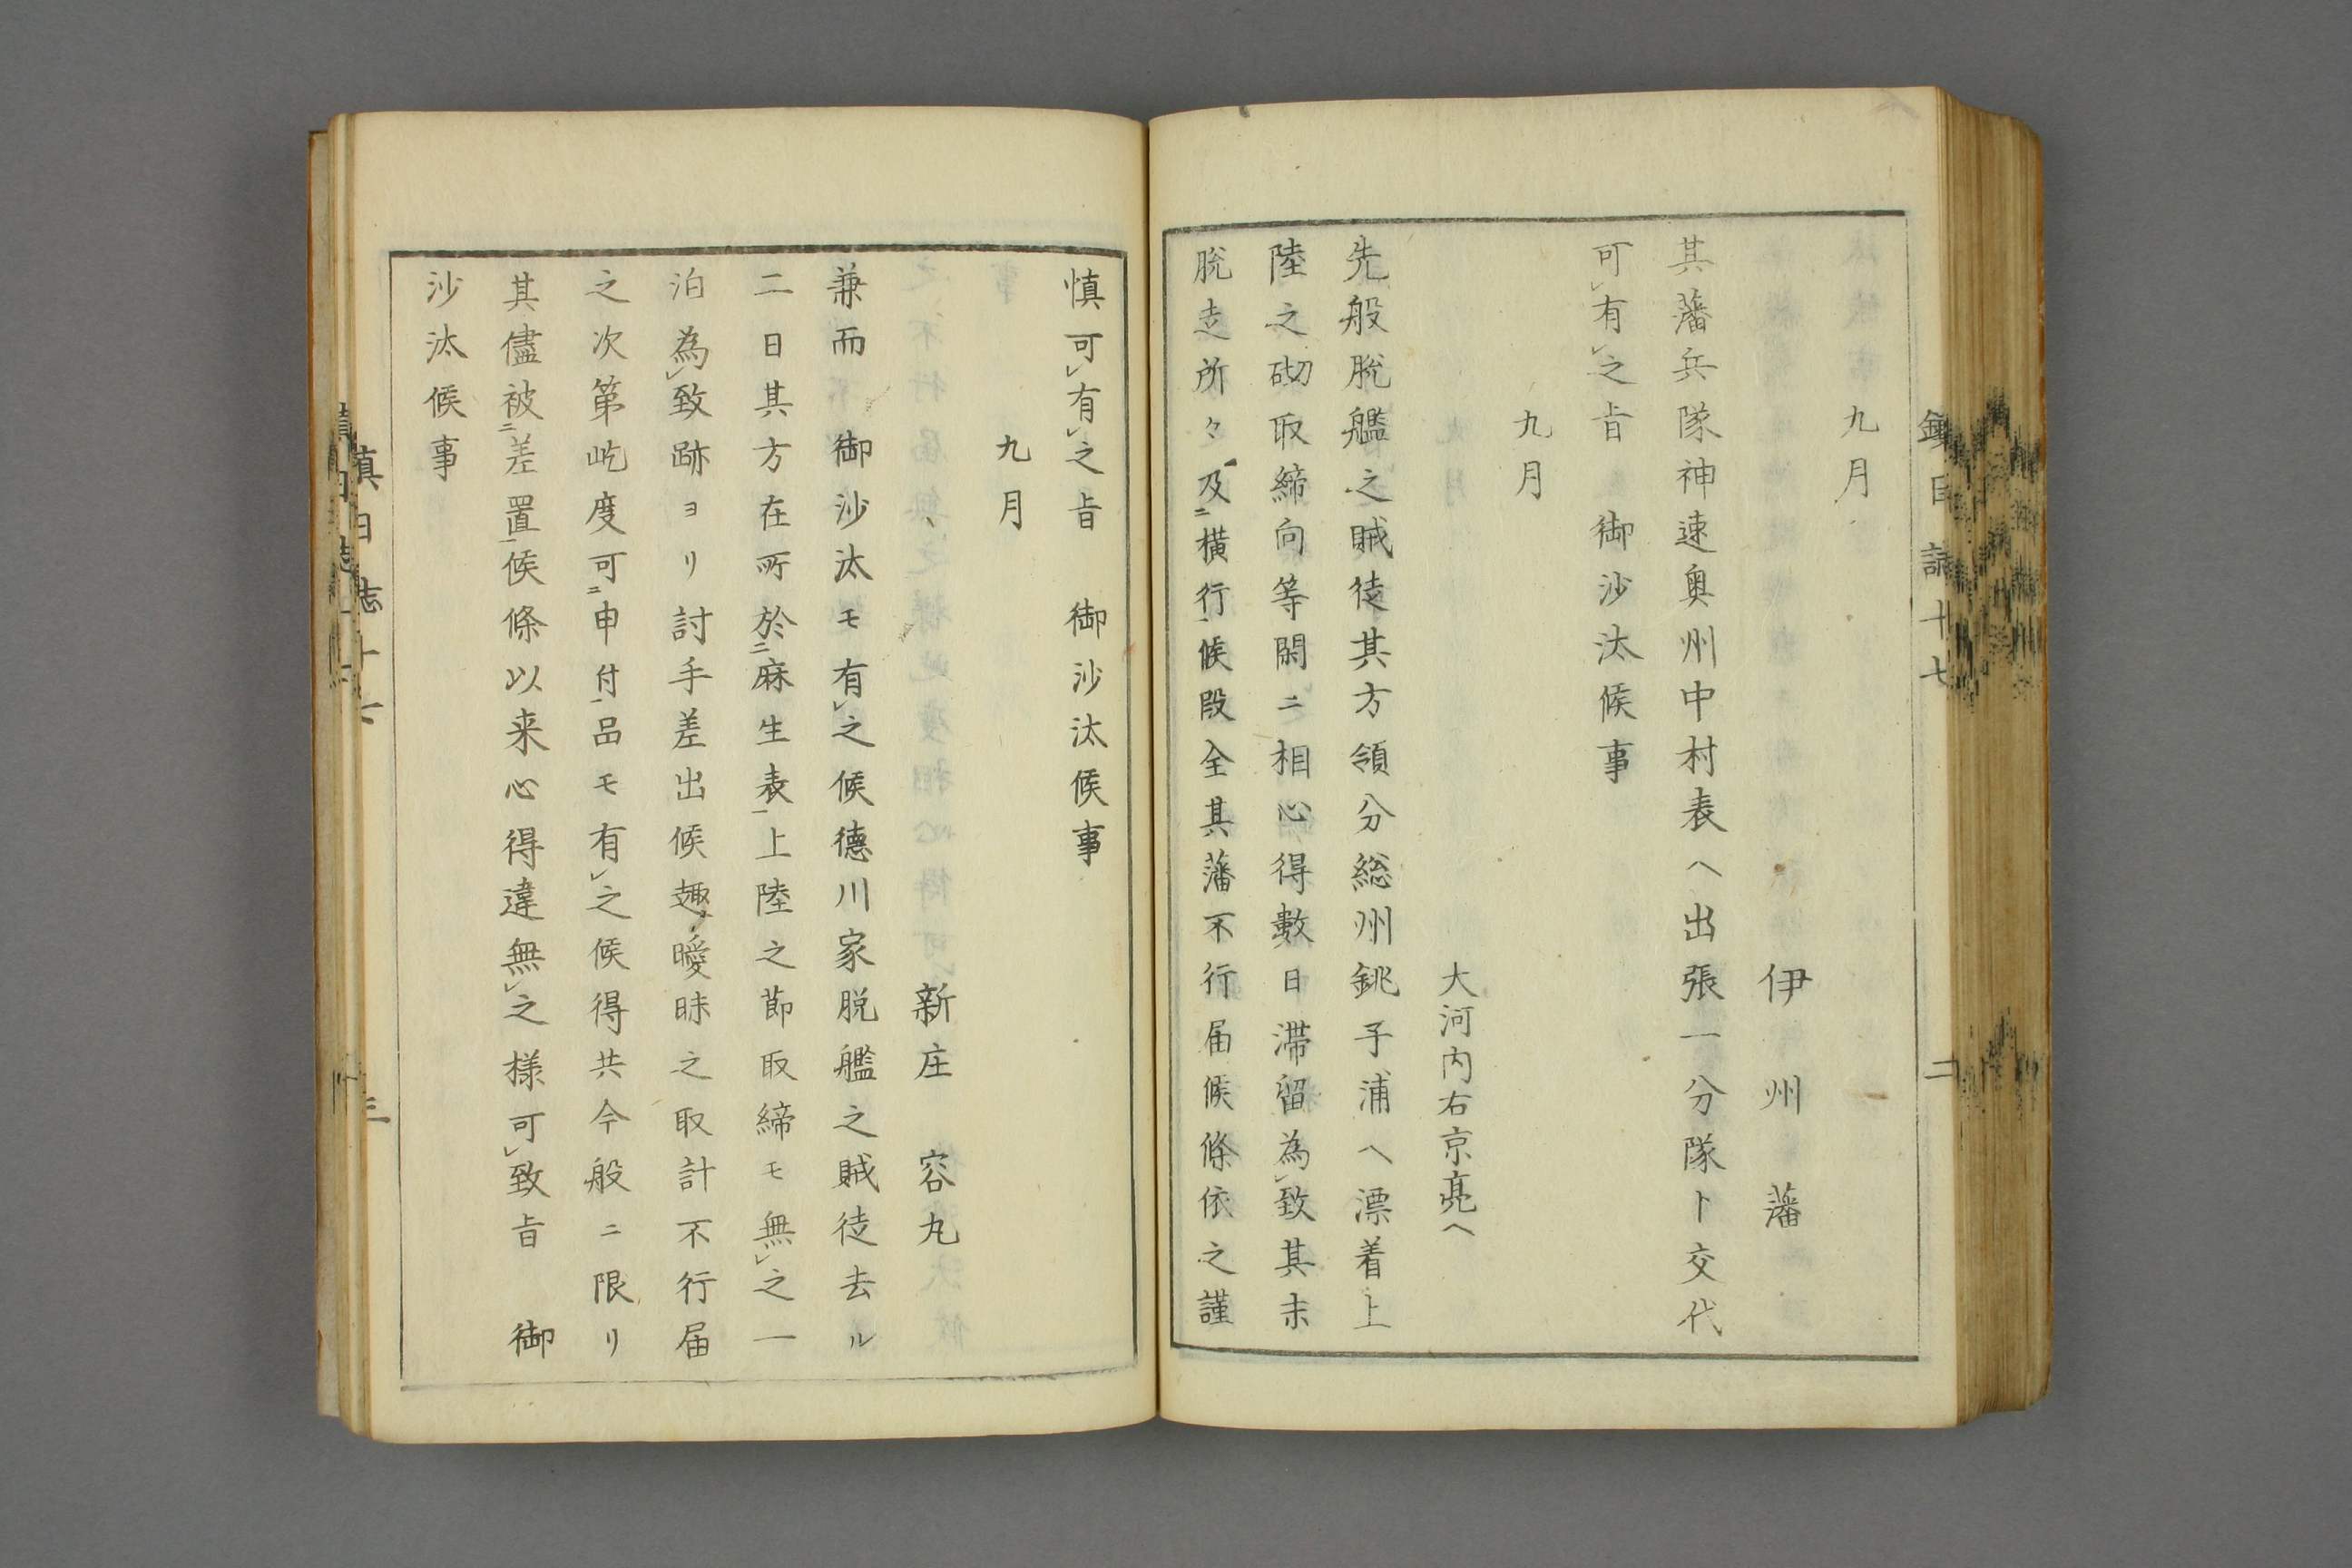 九月
伊州藩
其藩兵隊神速奥州中村表ヘ出張一分隊ト交代
可㆑有㆑之旨　御沙汰候事
九月
大河内右京亮ヘ
先般脱艦之賊徒其方領分総州銚子浦ヘ漂着上
陸之砌取締向等閑ニ相心得數日滞留為㆑致其末
脱走所々及㆓横行㆒候段全其藩不行届候條依之謹
慎可㆑有㆑之旨　御沙汰候事
九月
新庄　容丸
兼而　御沙汰モ有㆑之候德川家脱艦之賊徒去ル
二日其方在所於㆓麻生表㆒上陸之節取締モ無㆑之一
泊為㆑致跡ヨリ討手差出候趣曖昧之取計不行届
之次第屹度可㆓申付㆒品モ有㆑之候得共今般ニ限リ
其儘被㆓差置㆒候條以来心得違無㆑之様可㆑致旨　御
沙汰候事
鎮日誌十七
二